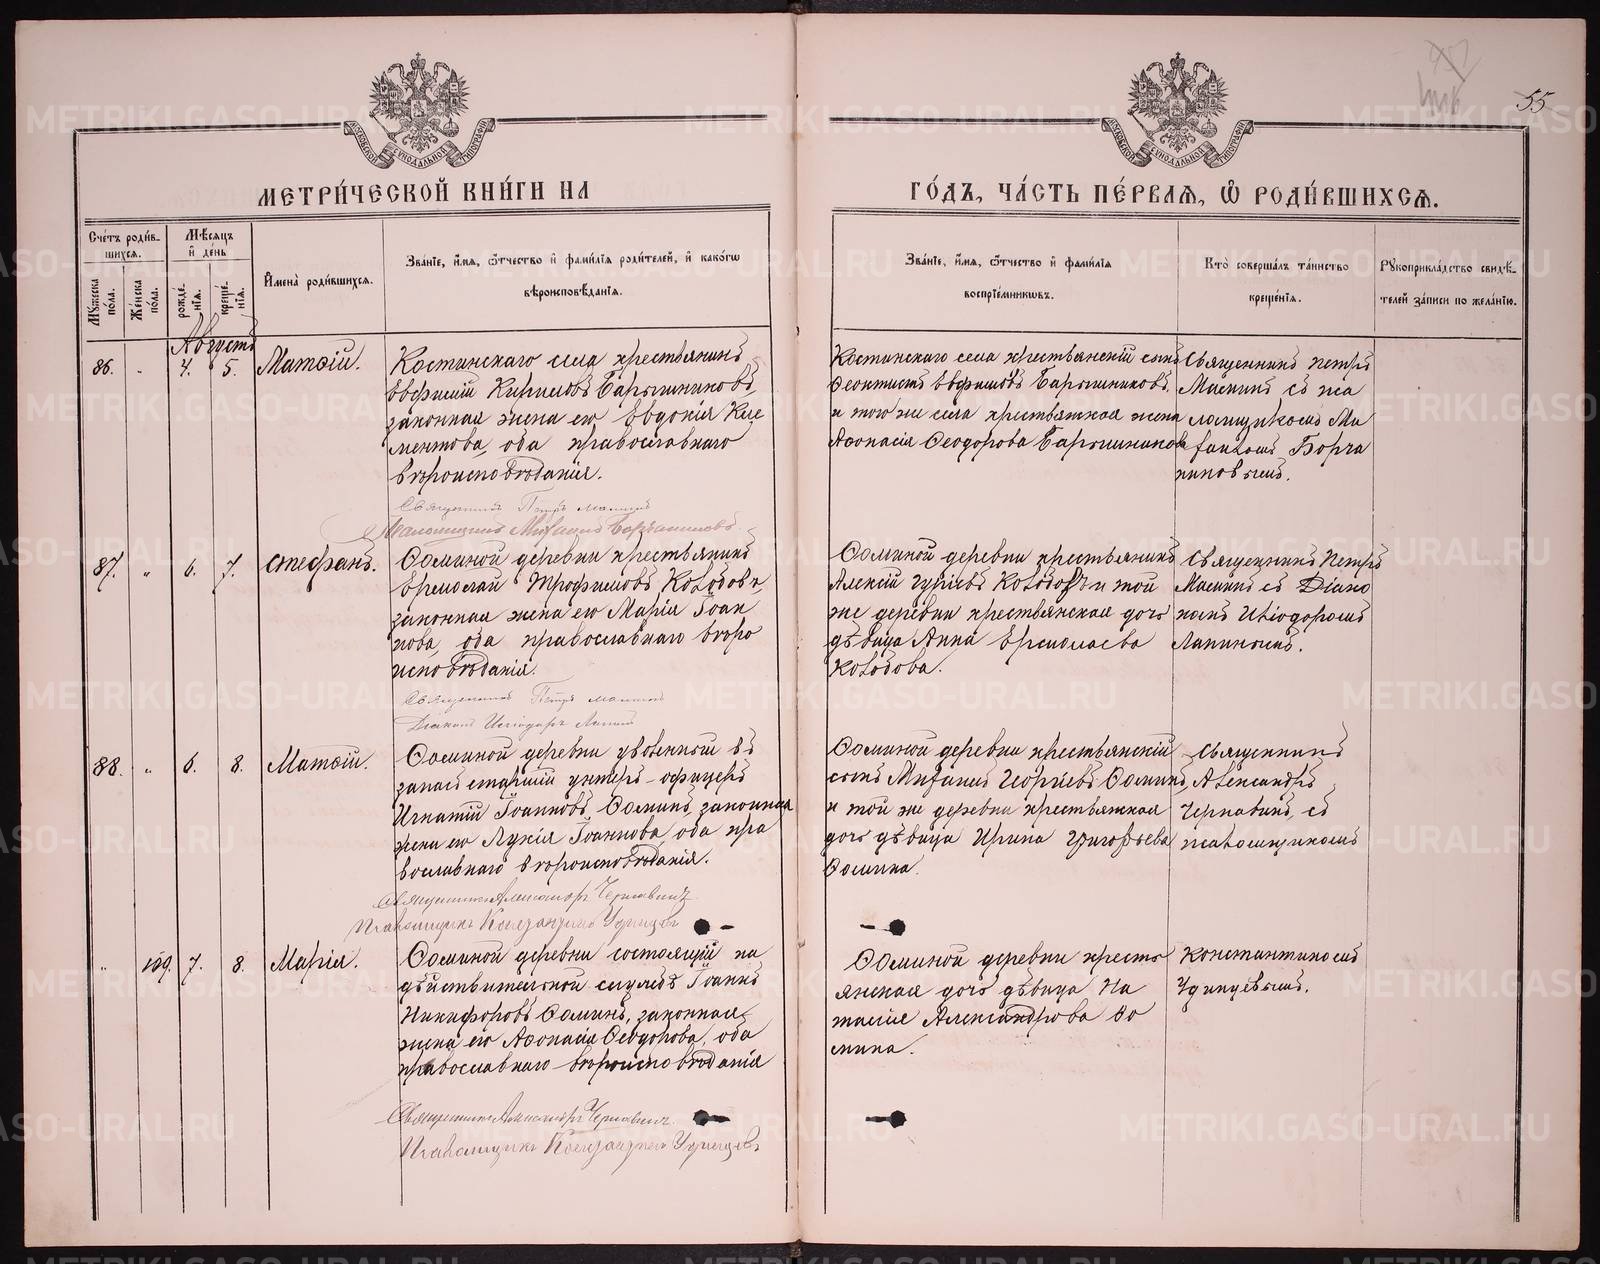 55
МОСКОВСКОЙ СѴНОДАЛЬНОЙ ТИПОГРАФІИ
МОСКОВСКОЙ СѴНОДАЛЬНОЙ ТИПОГРАФІИ
МЕТРИ́ЧЕСКОЙ КНИ́ГИ НА
ГО́ДЪ, ЧА́СТЬ ПЕ́РВАЯ, Ѡ҆ РОДИ́ВШИХСЯ.
Сче́тъ роди́в-
шихся.
Му́жеска
по́ла.
Же́нска
по́ла.
Мѣ́сяцъ
и҆ де́нь
рожде́-
нїя.
креще́-
нїя.
И҆мена̀ роди́вшихся.
Зва́нїе, и҆́мя, ѻ҆́тчество и҆ фами́лїя роди́телей, и҆ како́гѡ
вѣроисповѣ́данїя.
Зва́нїе, и҆́мя, ѻ҆́тчество и҆ фами́лїя
воспрїе́мникѡвъ.
Кто̀ соверша́лъ та́инство
креще́нїя.
Рꙋкоприкла́дство свидѣ́-
телей за́писи по жела́нїю.
Августъ
86.
„
4.
5.
Матѳій.
Костинскаго села крестьянинъ
Евфимій Кириловъ Барышниковъ,
законная жена его Евдокія Кли
ментова, оба православнаго
вѣроисповѣданія.
Священникъ Петръ Маминъ
Псаломщикъ Михаилъ Борчаниновъ.
Костинскаго села крестьянскій сынъ
Леонтистъ Евфимовъ Барышниковъ
и того же села крестьянская жена
Аѳонасія Ѳеодорова Барышникова
Священникъ Петръ
Маминъ съ пса
ломщикомъ Ми
хаиломъ Борча
ниновымъ.
87.
„
6.
7.
Стефанъ.
Ѳоминой деревни крестьянинъ
Ермолай Трофимовъ Колобовъ,
законная жена его Марія Іоан
нова, оба православнаго вѣро
исповѣданія.
Священникъ Петръ Маминъ
Діаконъ Иліодоръ Лапинъ
Ѳоминой деревни крестьянинъ
Алексій Гурьевъ Колобовъ и той
же деревни крестьянская дочь
дѣвица Анна Ермолаева
Колобова.
Священникъ Петръ
Маминъ съ Діако
номъ Иліодоромъ
Лапинымъ.
88.
„
6.
8.
Матѳій.
Ѳоминой деревни уволенный въ
запасъ старшій унтеръ-офицеръ
Игнатій Іоанновъ Ѳоминъ, законная
жена его Лукія Іоаннова, оба пра
вославнаго вѣроисповѣданія.
Священникъ Александръ Чернавинъ
Псаломщикъ Константинъ Удинцевъ
Ѳоминой деревни крестьянскій
сынъ Михаилъ Георгіевъ Ѳоминъ
и той же деревни крестьянская
дочь дѣвица Ирина Григорьева
Ѳомина.
Священникъ
Александръ
Чернавинъ съ
псаломщикомъ
„
109.
7.
8.
Марія.
Ѳоминой деревни состоящій на
дѣйствительной службѣ Іоаннъ
Никифоровъ Ѳоминъ, законная
жена его Аѳонасія Ѳеодорова, оба
православнаго вѣроисповѣданія
Священникъ Александръ Чернавинъ.
Псаломщикъ Константинъ Удинцевъ
Ѳоминой деревни кресть
янская дочь дѣвица На
талія Александрова Ѳо
мина.
Константиномъ
Удинцевымъ.
METRIKI.GASO-URAL.RU